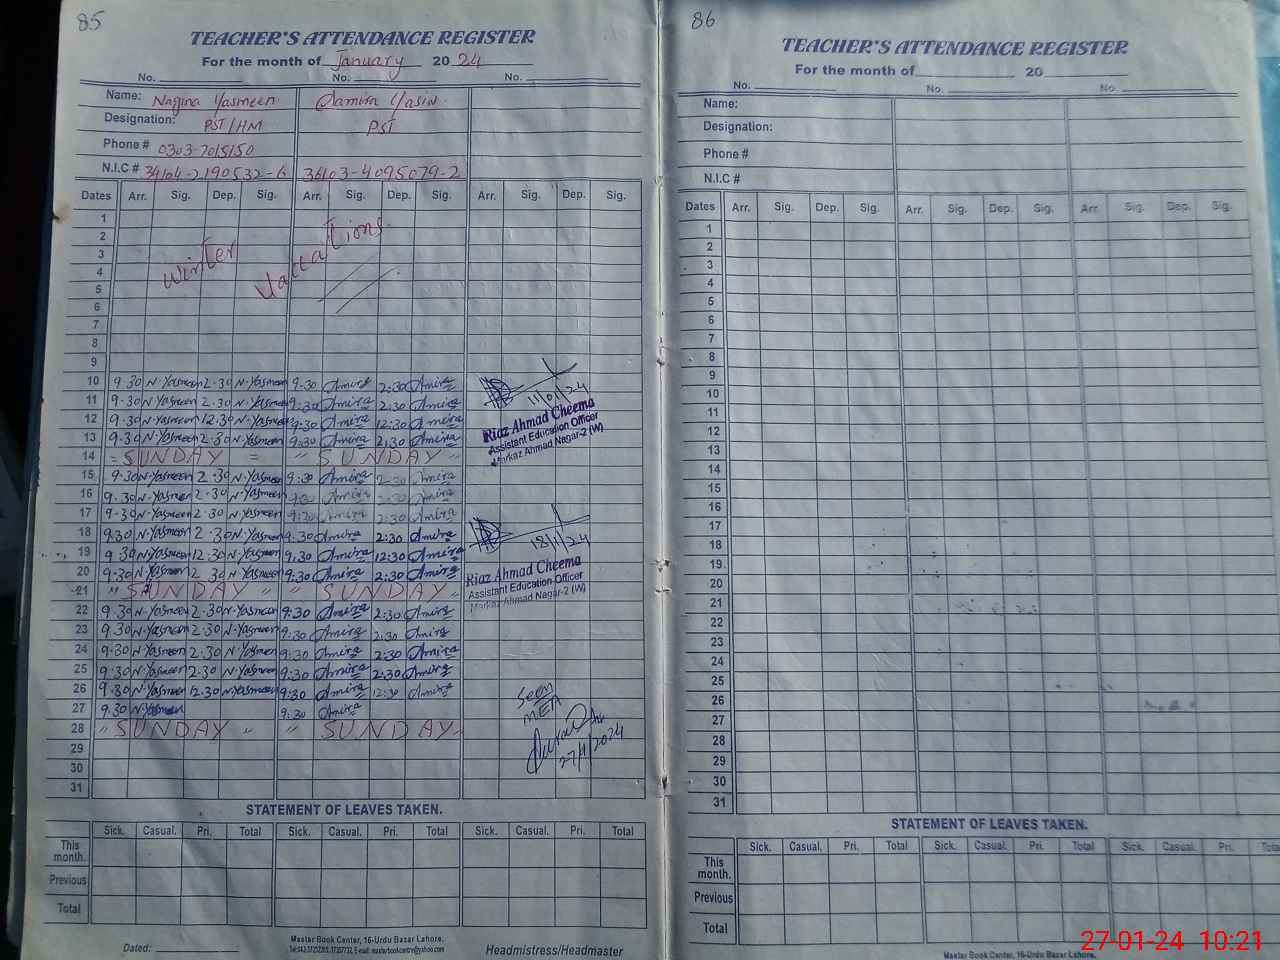 85
TEACHER'S ATTENDANCE REGISTER
For the month of January 20 24
No. No. No.
Name: Nagina Yasmeen Samira Yasin
Designation: PST/HM PST
Phone # 0303-7015150
N.I.C # 34104-2190532-6 36103-4095079-2
Dates Arr. Sig. Dep. Sig. Arr. Sig. Dep. Sig. Arr. Sig. Dep. Sig.
1
2
3
4
5
6
7
8
9
Winter Vaccations
10 9.30 N.Yasmeen 2.30 N.Yasmeen 9:30 Amira 2:30 Amira
11 9.30 N.Yasmeen 2.30 N.Yasmeen 9:30 Amira 2:30 Amira
12 9.30 N.Yasmeen 12.30 N.Yasmeen 9:30 Amira 12:30 Amira
13 9.30 N.Yasmeen 2.30 N.Yasmeen 9:30 Amira 2:30 Amira
14 = SUNDAY = " SUNDAY "
15 9.30 N.Yasmeen 2.30 N.Yasmeen 9:30 Amira 2:30 Amira
16 9.30 N.Yasmeen 2.30 N.Yasmeen 9:30 Amira 2:30 Amira
17 9.30 N.Yasmeen 2.30 N.Yasmeen 9:30 Amira 2:30 Amira
18 9.30 N.Yasmeen 2.30 N.Yasmeen 9:30 Amira 2:30 Amira
19 9.30 N.Yasmeen 12.30 N.Yasmeen 9:30 Amira 12:30 Amira
20 9.30 N.Yasmeen 2.30 N.Yasmeen 9:30 Amira 2:30 Amira
21 " SUNDAY " " SUNDAY "
22 9.30 N.Yasmeen 2.30 N.Yasmeen 9:30 Amira 2:30 Amira
23 9.30 N.Yasmeen 2.30 N.Yasmeen 9:30 Amira 2:30 Amira
24 9.30 N.Yasmeen 2.30 N.Yasmeen 9:30 Amira 2:30 Amira
25 9.30 N.Yasmeen 2.30 N.Yasmeen 9:30 Amira 2:30 Amira
26 9.30 N.Yasmeen 12.30 N.Yasmeen 9:30 Amira 12:30 Amira
27 9.30 N.Yasmeen 9:30 Amira
28 " SUNDAY " " SUNDAY "
29
30
31
11/01/24
Riaz Ahmad Cheema
Assistant Education Officer
Markaz Ahmad Nagar-2 (W)
18/1/24
Riaz Ahmad Cheema
Assistant Education Officer
Markaz Ahmad Nagar-2 (W)
Seen
MEA
27/1/2024
STATEMENT OF LEAVES TAKEN.
Sick. Casual. Pri. Total Sick. Casual. Pri. Total Sick. Casual. Pri. Total
This month.
Previous
Total
Dated:
Master Book Center, 16-Urdu Bazar Lahore.
Headmistress/Headmaster
86
TEACHER'S ATTENDANCE REGISTER
For the month of 20
No. No. No.
Name:
Designation:
Phone #
N.I.C #
Dates Arr. Sig. Dep. Sig. Arr. Sig. Dep. Sig. Arr. Sig. Dep. Sig.
1
2
3
4
5
6
7
8
9
10
11
12
13
14
15
16
17
18
19
20
21
22
23
24
25
26
27
28
29
30
31
STATEMENT OF LEAVES TAKEN.
Sick. Casual. Pri. Total Sick. Casual. Pri. Total Sick. Casual. Pri. Total
This month.
Previous
Total
Master Book Center, 16-Urdu Bazar Lahore.
27-01-24 10:21